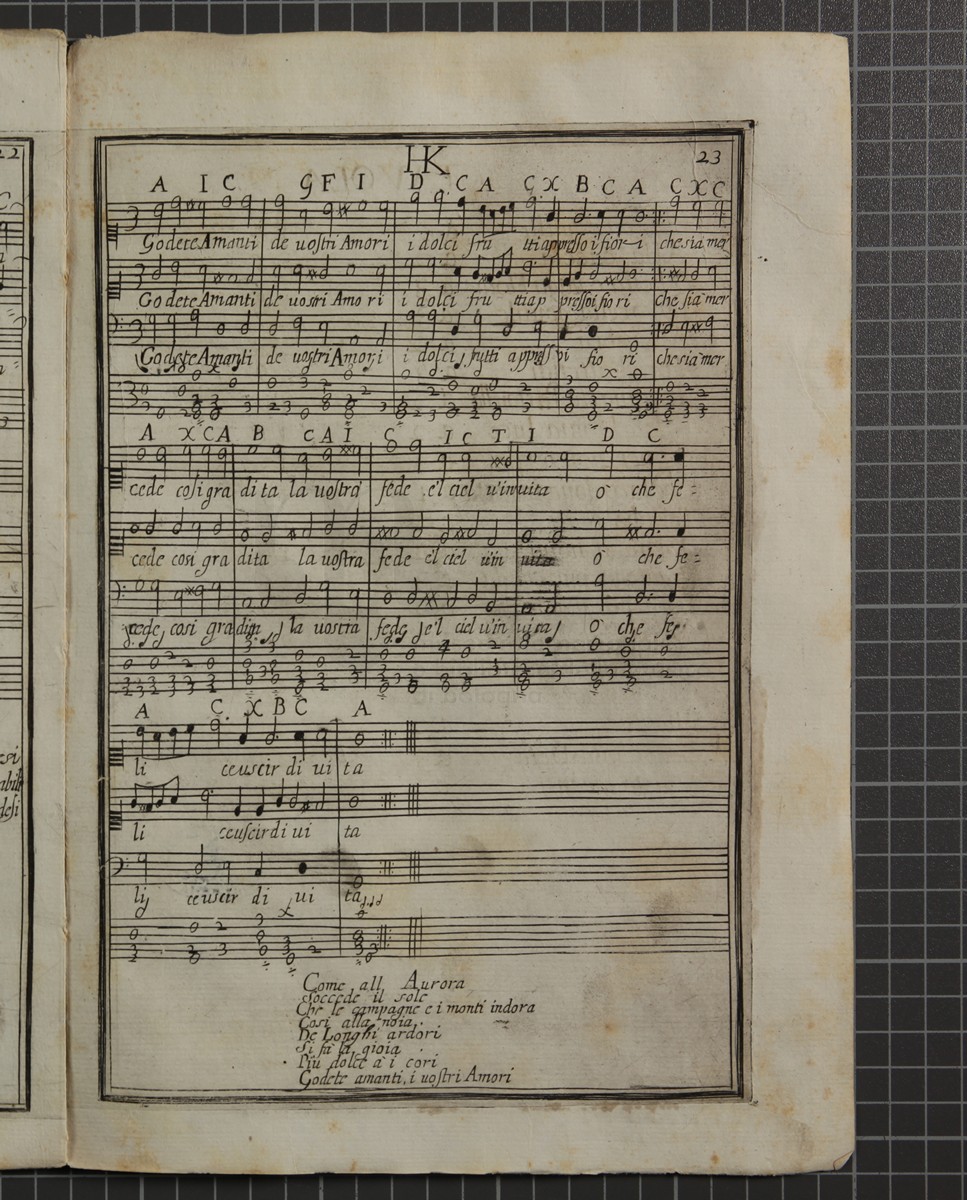 HK 23
A I C G F I D C A C X B C A C X C
Godete Amanti de uostri Amori i dolci fru tti appresso i fior-i che sia mer
Go dete Amanti de uostri Amo ri i dolci fru ttiap pressoi fio ri che sia mer
Godete Amanti de uostri Amori i dolci frutti appress oi fio ri che sia mer
A X C A B C A I G I C T I D C
cede cosi gra di ta la uostra fede e'l ciel u'inuita ò che fe=
cede cosi gra dita la uostra fede el ciel uin uita ò che fe=
cede cosi gradita la uostra fede e'l ciel u'in uita ò che fe
A C. X B C A
li ceuscir di ui ta
li ceuscir di ui ta
li ceuscir di ui ta
Come all Aurora
Soccede il sole
Che le campagne e i monti indora
Cosi alla noia.
De Longhi ardori
Si fà la gioia.
Più dolce à i cori.
Godete amanti, i uostri Amori